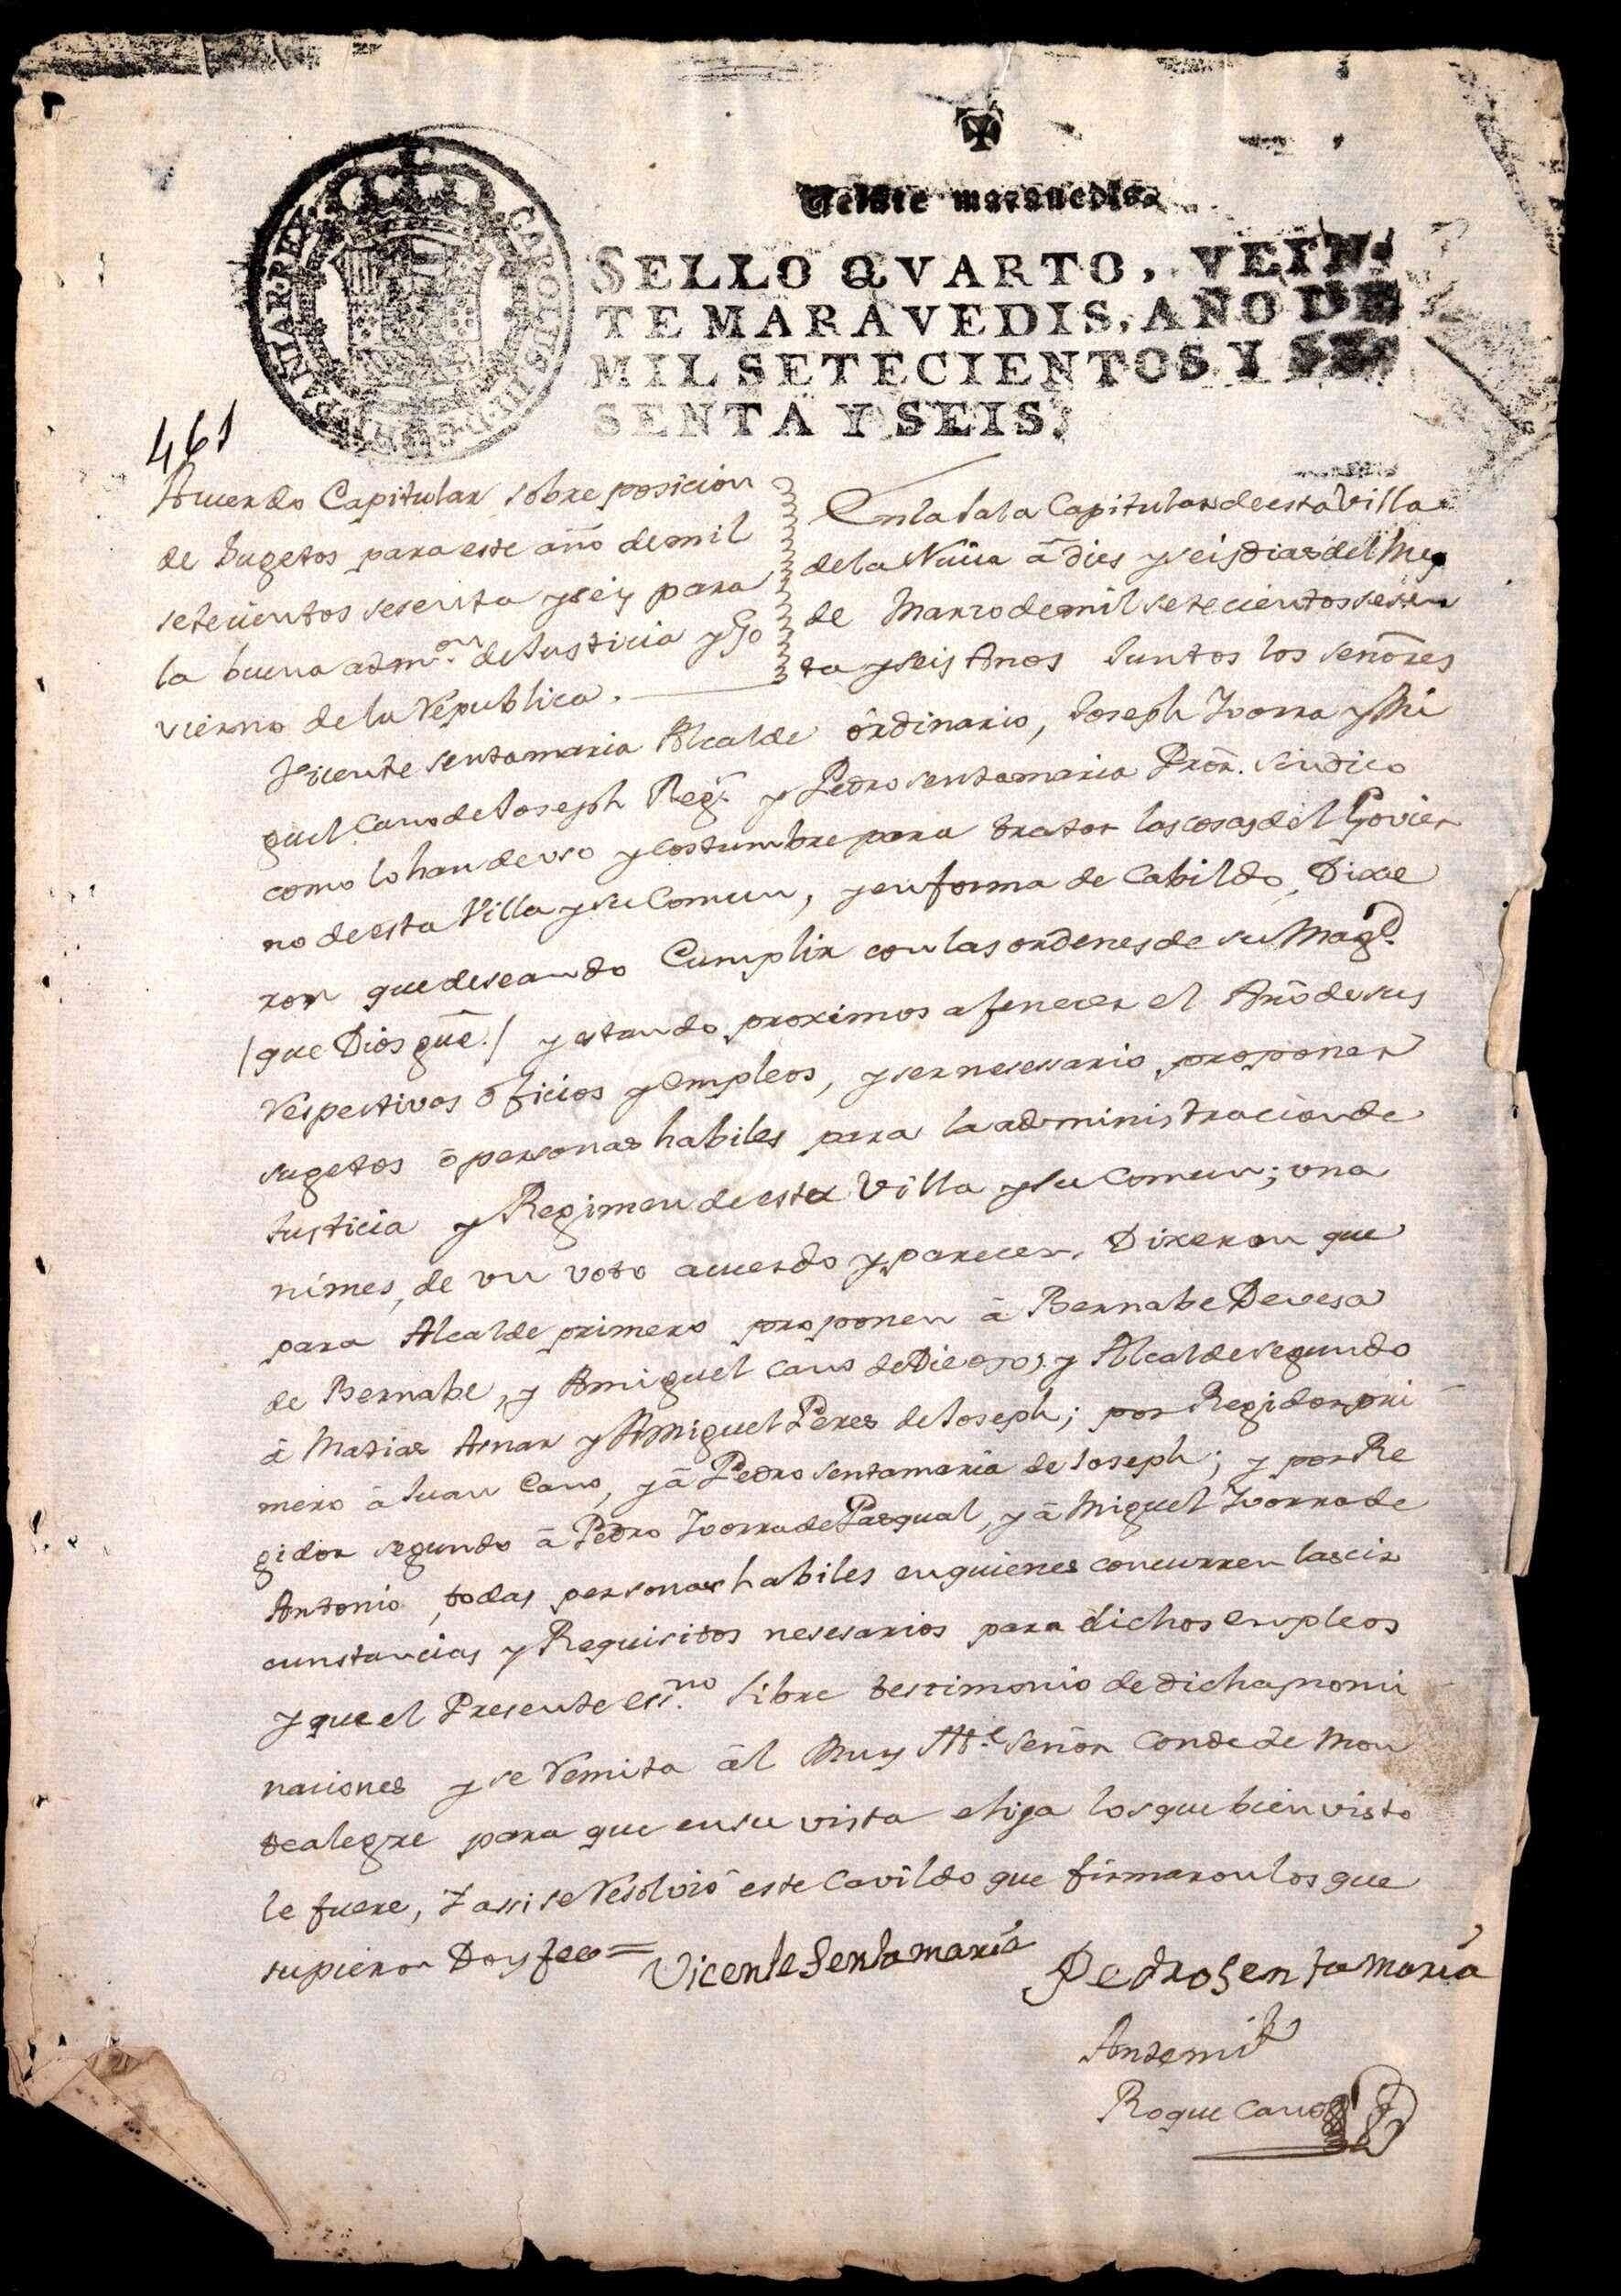 Veinte maravedis.
SELLO QVARTO, VEIN-
TE MARAVEDIS, AÑO DE
MIL SETECIENTOS Y SE-
SENTA Y SEIS.
CAROLUS III D G HISPANIAR REX
461
Acuerdo Capitular sobre posicion
de Sugetos para este año de mil
setecientos sesenta y seis para
la buena adm.on de Justicia y Go
vierno de la Republica.
En la Sala Capitular de esta Villa
de la Nucia â dies y seis dias del Mes
de Marzo de mil setecientos sesen
ta y seis Anos Juntos los señores
Vicente sentamaria Alcalde ordinario, Joseph Ivorra y Mi
guel Cano de Joseph Reg.s y Pedro sentamaria Pror. sindico
como lo han de uso y costumbre para tratar las cosas del Govier
no de esta Villa y su Comun, y en forma de Cabildo, Dixe
ron que deseando Cumplir con las ordenes de su Mag.d
(que Dios gûe.) y estando proximos a fenecer el Año de sus
respectivos oficios y empleos, y ser nesessario proponer
sugetos ô personas habiles para la administracion de
Justicia y Regimen de esta Villa y su Comun; una
nimes, de un voto acuerdo y parecer, Dixeron que
para Alcalde primero proponen â Bernabe Devesa
de Bernabe, y A miguel Cano de Diego; y Alcalde segundo
â Matias Arnar y A Miguel Peres de Joseph; por Regidor pri
mero â Juan Cano, y â Pedro Sentamaria de Joseph; y por Re
gidor segundo â Pedro Ivorra de Pasqual, y â Miguel Ivorra de
Antonio, todas personas habiles en quienes concurren las cir
cunstancias y Requisitos nesesarios para dichos empleos
y que el Presente ess.no libre testimonio de dichas nomi
naciones y se remita âl Muy Itt.e Señor Conde de Mon
tealegre para que en su vista elija los que bien visto
le fuere, Y assi se resolvió este Cavildo que firmaron los que
supieron Doy fee =
Vicente Sentamaria
Pedro Sentamaria
Ante mi
Roque Cano